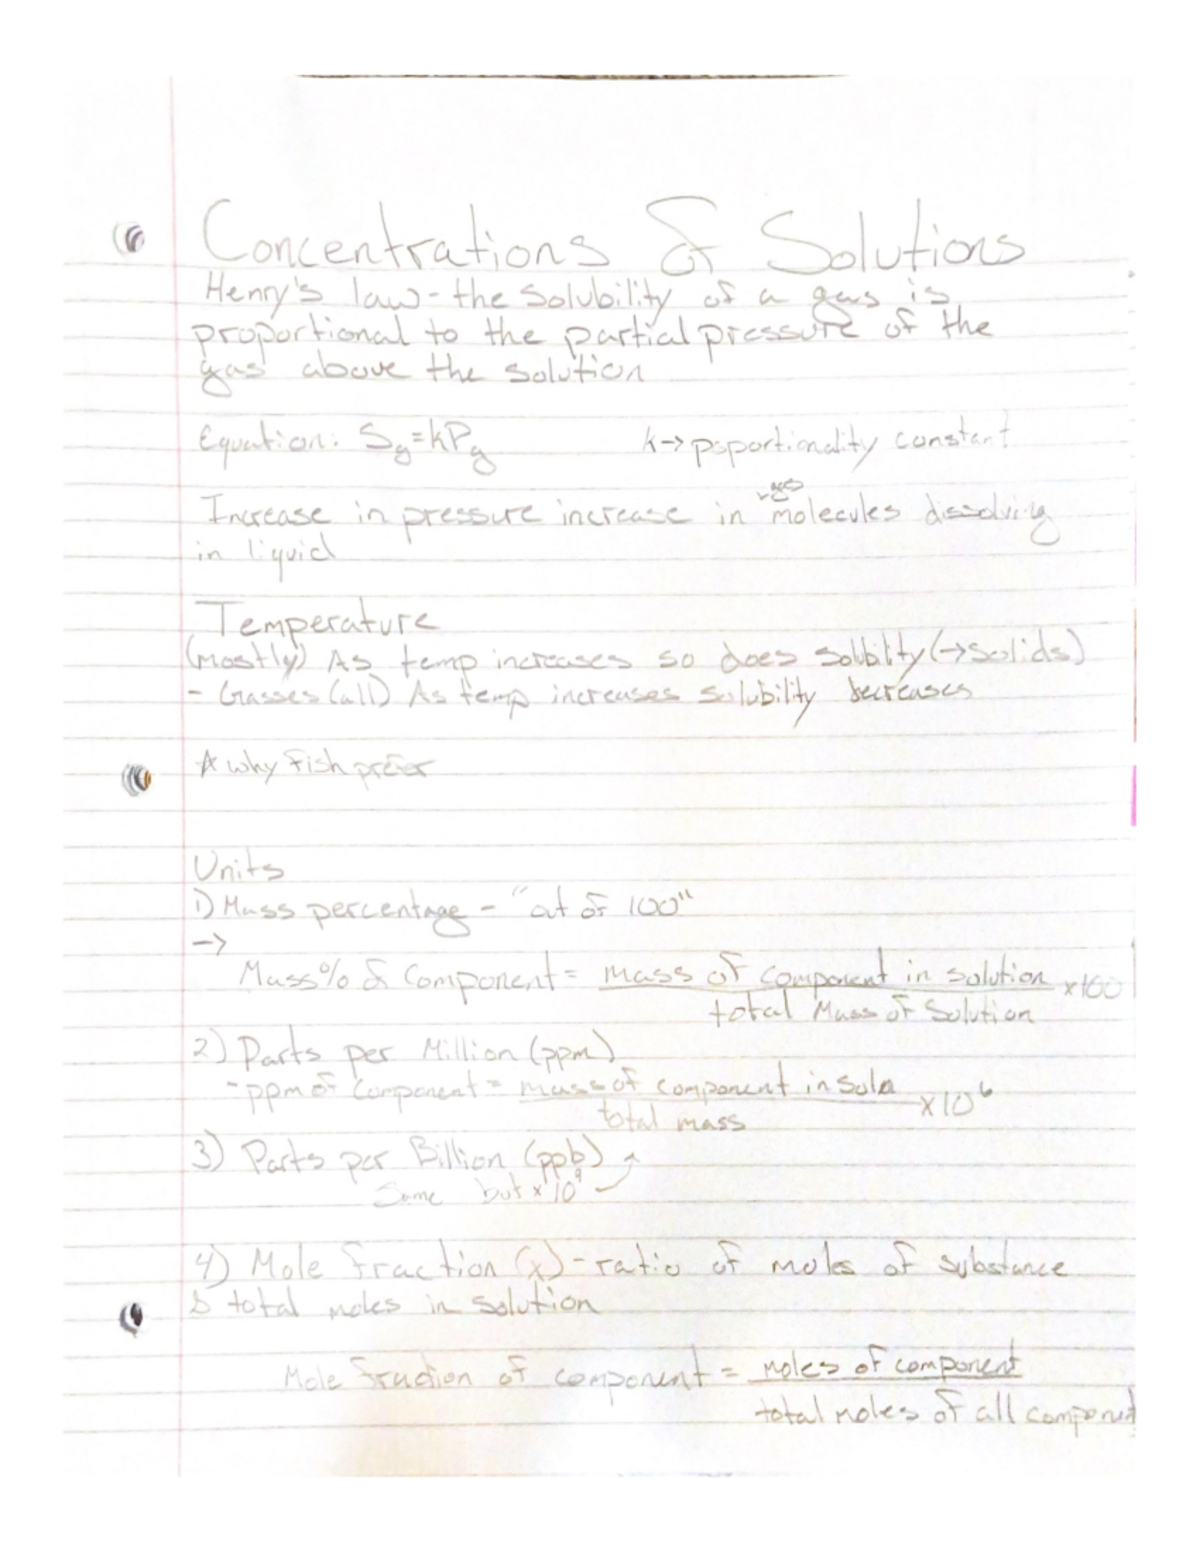 Concentrations of Solutions
Henry's law - the solubility of a gas is
proportional to the partial pressure of the
gas above the solution
Equation: Sg = kPg k → poportionality constant
Increase in pressure increase in gas molecules dissolving
in liquid
Temperature
(mostly) As temp increases so does solbility (→ solids)
- Gasses (all) As temp increases solubility decreases
★ why fish prefer
Units
1) Mass percentage - "out of 100"
→
Mass % of Component = mass of component in solution / total Mass of Solution × 100
2) Parts per Million (ppm)
- ppm of Component = mass of component in soln / total mass × 10⁶
3) Parts per Billion (ppb)
Same but × 10⁹
4) Mole fraction (x) - ratio of moles of substance
& total moles in solution
Mole fraction of component = moles of component / total moles of all component